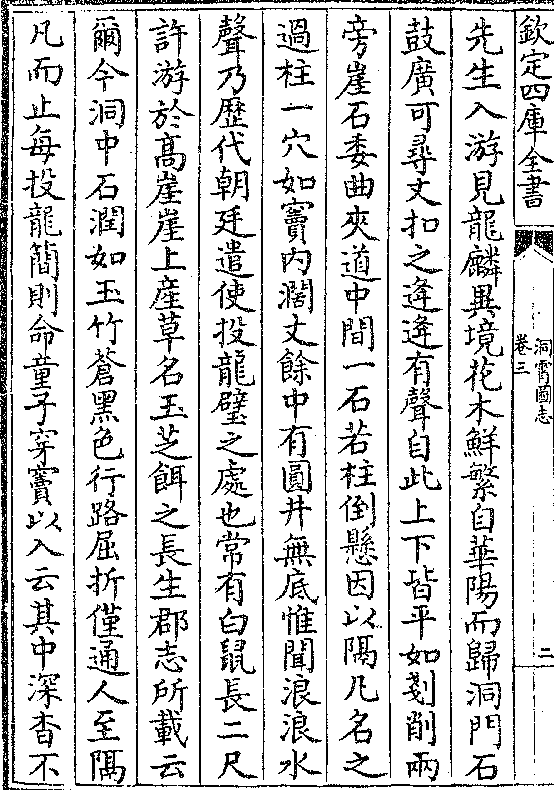 欽定四庫全書
洞霄圖志
卷三
二
先生入游見龍麟異境花木鮮繁自華陽而歸洞門石
鼓廣可尋丈扣之逄逄有聲自此上下皆平如剗削兩
旁崖石委曲夾道中間一石若柱倒懸因以隔凡名之
過柱一穴如竇内濶丈餘中有圓井無底惟聞浪浪水
聲乃歴代朝廷遣使投龍璧之處也常有白鼠長二尺
許游於髙崖崖上産草名玉芝餌之長生郡志所載云
爾今洞中石潤如玉竹蒼黑色行路屈折僅通人至隔
凡而止每投龍簡則命童子穿竇以入云其中深杳不